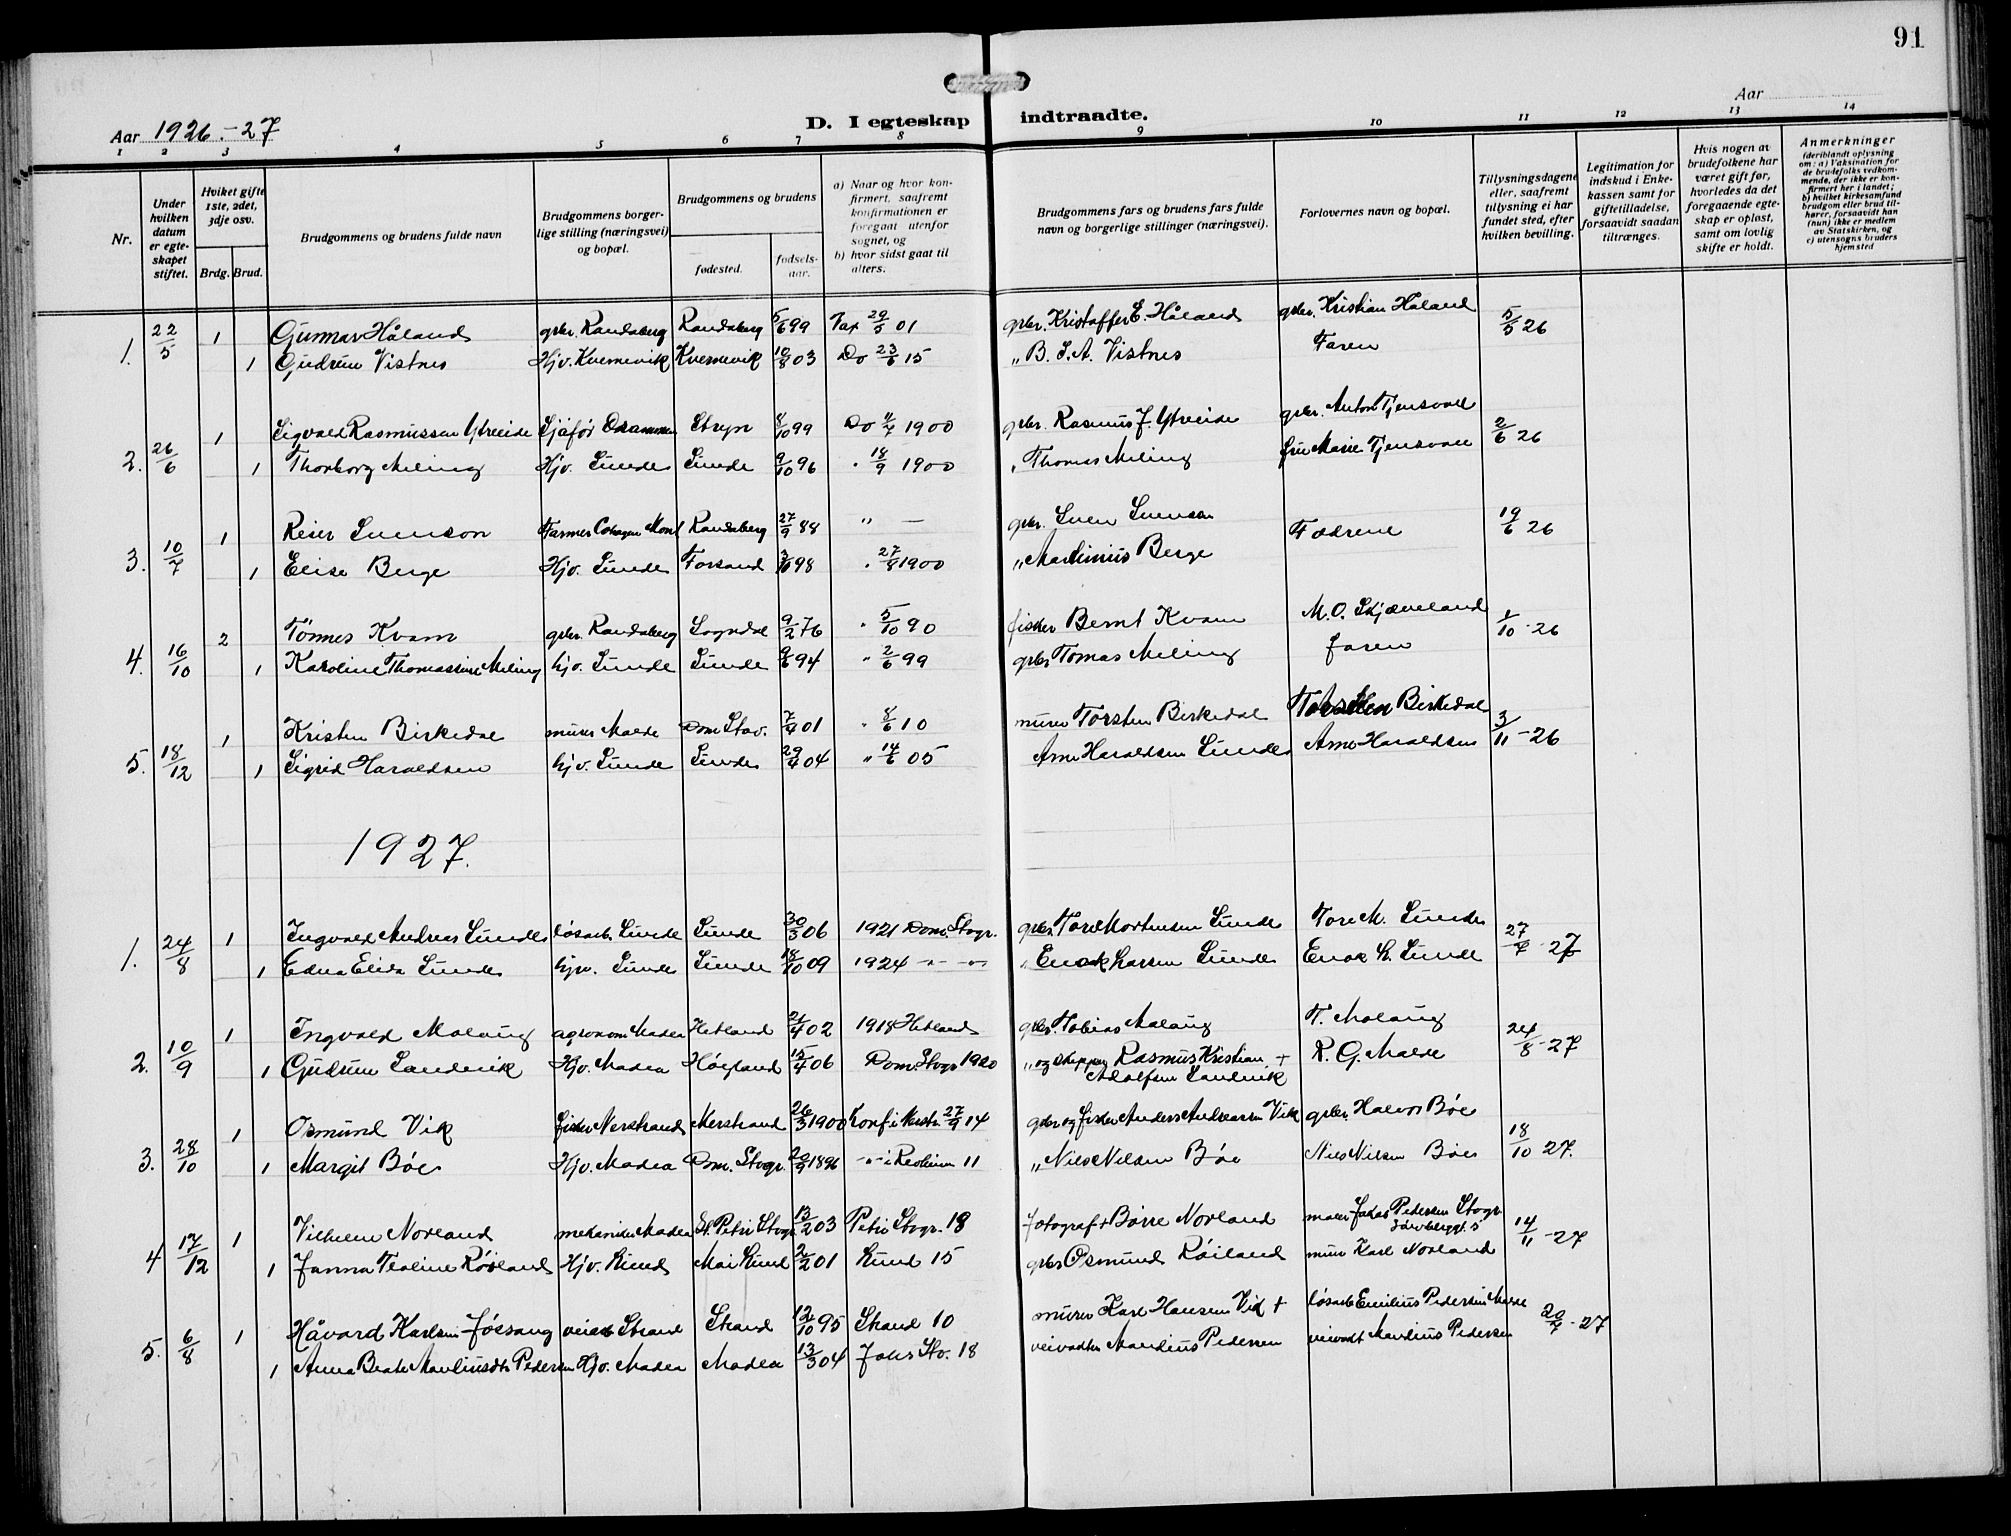 91
Aar 1926.-27
D. I egteskap indtraadte.
Aar
1 2 3 4 5 6 7 8 9 10 11 12 13 14
Nr.
Under hvilken datum er egteskapet stiftet.
Hviket gifte 1ste, 2det, 3dje osv.
Brdg. Brud.
Brudgommens og brudens fulde navn
Brudgommens borgerlige stilling (næringsvei) og bopæl.
Brudgommens og brudens
fødested.
fødselsaar.
a) Naar og hvor konfirmert, saafremt konfirmationen er foregaat utenfor sognet, og
b) hvor sidst gaat til alters.
Brudgommens fars og brudens fars fulde navn og borgerlige stillinger (næringsvei).
Forlovernes navn og bopæl.
Tillysningsdagene eller, saafremt tillysning ei har fundet sted, efter hvilken bevilling.
Legitimation for indskud i Enkekassen samt for giftetilladelse, forsaavidt saadan tiltrænges.
Hvis nogen av brudefolkene har været gift før, hvorledes da det foregaaende egteskap er opløst, samt om lovlig skifte er holdt.
Anmerkninger
(deriblandt oplysning om: a) Vaksination for de brudefolks vedkommende, der ikke er konfirmert her i landet; b) hvilket kirkesamfund brudgom eller brud tilhører, forsaavidt han (hun) ikke er medlem av Statskirken, og c) utensogns bruders hjemsted
1. 22/5 1 Gunnar Håland gbr. Randaberg Randaberg 5/6 99 01 gbr. Kristoffer E. Håland gbr. Kristian Håland 5/5 26
1 Gudrun Vistnes Hjv. Kvernevik Kvernevik 10/8 03 Do 23/6 15 " B. S. A. Vistnes Faren
2. 26/6 1 Sigvald Rasmussen Ytreeide Sjåfør Drammen Stryn 8/10 99 Do 1900 gbr. Rasmus J. Ytreeide gbr. Anton Tjensvold 2/6 26
1 Thorborg Meling Hjv. Sunde Sunde 9/10 96 " 18/9 1900 " Thomas Meling fru Marie Tjensvold
3. 10/7 1 Reier Svenson Farmer Mont Randaberg 27/9 88 " — gbr. Sven Svenson Fædrene 19/6 26
1 Elise Berge Hjv. Sunde Forsand 98 " 27/8 1900 " Martinius Berge
4. 16/10 2 Tönnes Kvam gbr. Randaberg Sogndal 9/2 76 " 5/10 90 fisker Bernt Kvam M. O. Skjæveland 1/10 - 26
1 Karoline Thomassine Meling hjv. Sunde Sunde 9/6 94 " 2/6 99 gbr Tomas Meling faren
5. 18/12 1 Kristen Birkedal murer Malde Dom Stav. 7/4 01 " 8/6 10 murer Torsten Birkedal Torsten Birkedal 3/11 - 26
1 Sigrid Haraldsen hjv. Sunde Sunde 29/4 04 " 14/6 05 Arne Haraldsen Sunde Arne Haraldsen
1927.
1. 24/8 1 Ingvald Andreas Sunde løsarb. Sunde Sunde 30/3 06 1921 Dom. Stvgr. gbr. Tore Mortensen Sunde Tore M. Sunde 27/7 - 27
1 Edna Elida Sunde hjv. Sunde Sunde 18/10 09 1924 -"- -"- " Enok Larsen Sunde Enok L. Sunde
2. 10/9 1 Ingvald Malaug agronom Madla Hetland 21/4 02 1918 Hetland gbr. Tobias Malaug T. Malaug 24/8 - 27
1 Gudrun Sandvik Hjv. Madla Høyland 15/4 06 Dom. Stvgr 1920 " og skipper Rasmus Kristian + R. G. Malde
Adolfsen Sandvik
3. 28/10 1 Osmund Vik fisker Nerstrand Nerstrand 26/3 1900 Konf i Nerstr. 27/9 14 gbr og fisker Anders Andreassen Vik gbr. Halvor Bøe 18/10 27.
1 Margit Bøe Hjv. Madla Dom. Stvgr. 20/9 1896 -"- i Revheim 11 " Nils Nilsen Bøe Nils Nilsen Bøe
4 17/12 1 Vilhelm Norland mekaniker Madla St. Petri Stvgr 13/2 03 Petri Stvgr. 18 fotograf + Börre Norland maler Jakob Pedersen Stvgr. 14/11 - 27
1 Janna Teoline Röiland Hjv. Lund Lund 2/2 01 Lund 15 gbr Osmund Röiland murer Karl Norland
5. 6/8 1 Håvard Karlsen Jøssang veiarb Strand Strand 12/10 95 Strand 10 murer Karl Hansen Vik + løsarb Emilius Pedersen Malde 20/7 - 27
1 Anna Beate Mauliusdtr Pedersen Hjv. Madla Madla 13/3 04 Johs Stv. 18 veivokter Maudius Pedersen veivokt Maudius Pedersen